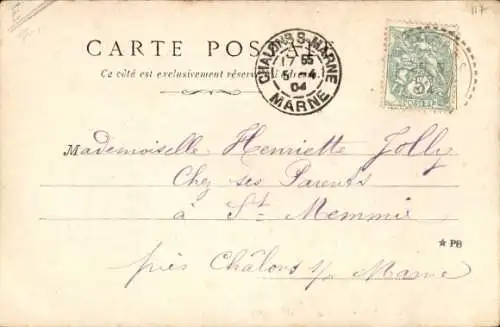 E
117.
CARTE POS
Ce côté est exclusivement réservé
CHALONS-S-MARNE
17 55
5 -4
04
MARNE
Mademoiselle Henriette Jolly
Chez ses Parents
à St Memmie
★ PB
près Châlons s/ Marne